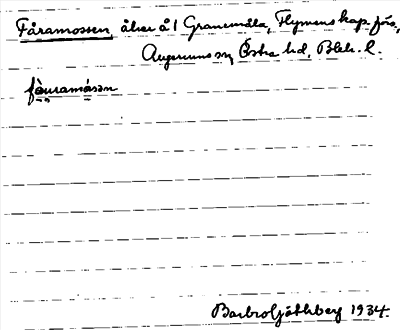 Fåramossen, åker å 1 Granemåla, Flymens kap.förs.,
Augerums sn, Östra hd, Blek. l.
fåuramåsən
Barbro Göthberg 1934.